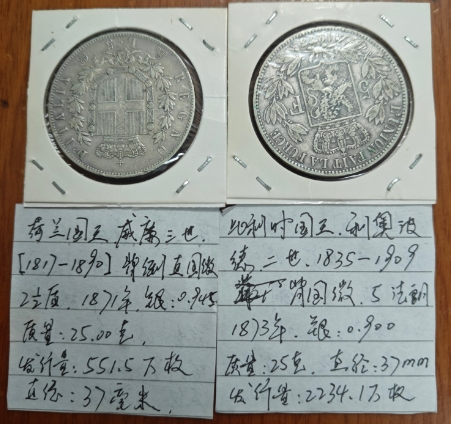 REGNO D'ITALIA
L'UNION FAIT LA FORCE
5 F
荷兰国王 威廉三世.
[1817-1890] 背面国徽
2½盾. 1871年. 银:0.945
质量:25.00克.
发行量:551.5万枚
直径:37毫米.
比利时国王.利奥波
德二世.1835-1909
背国徽.5法郎
1873年.银:0.900
质量:25克.直径:37mm
发行量:2234.1万枚